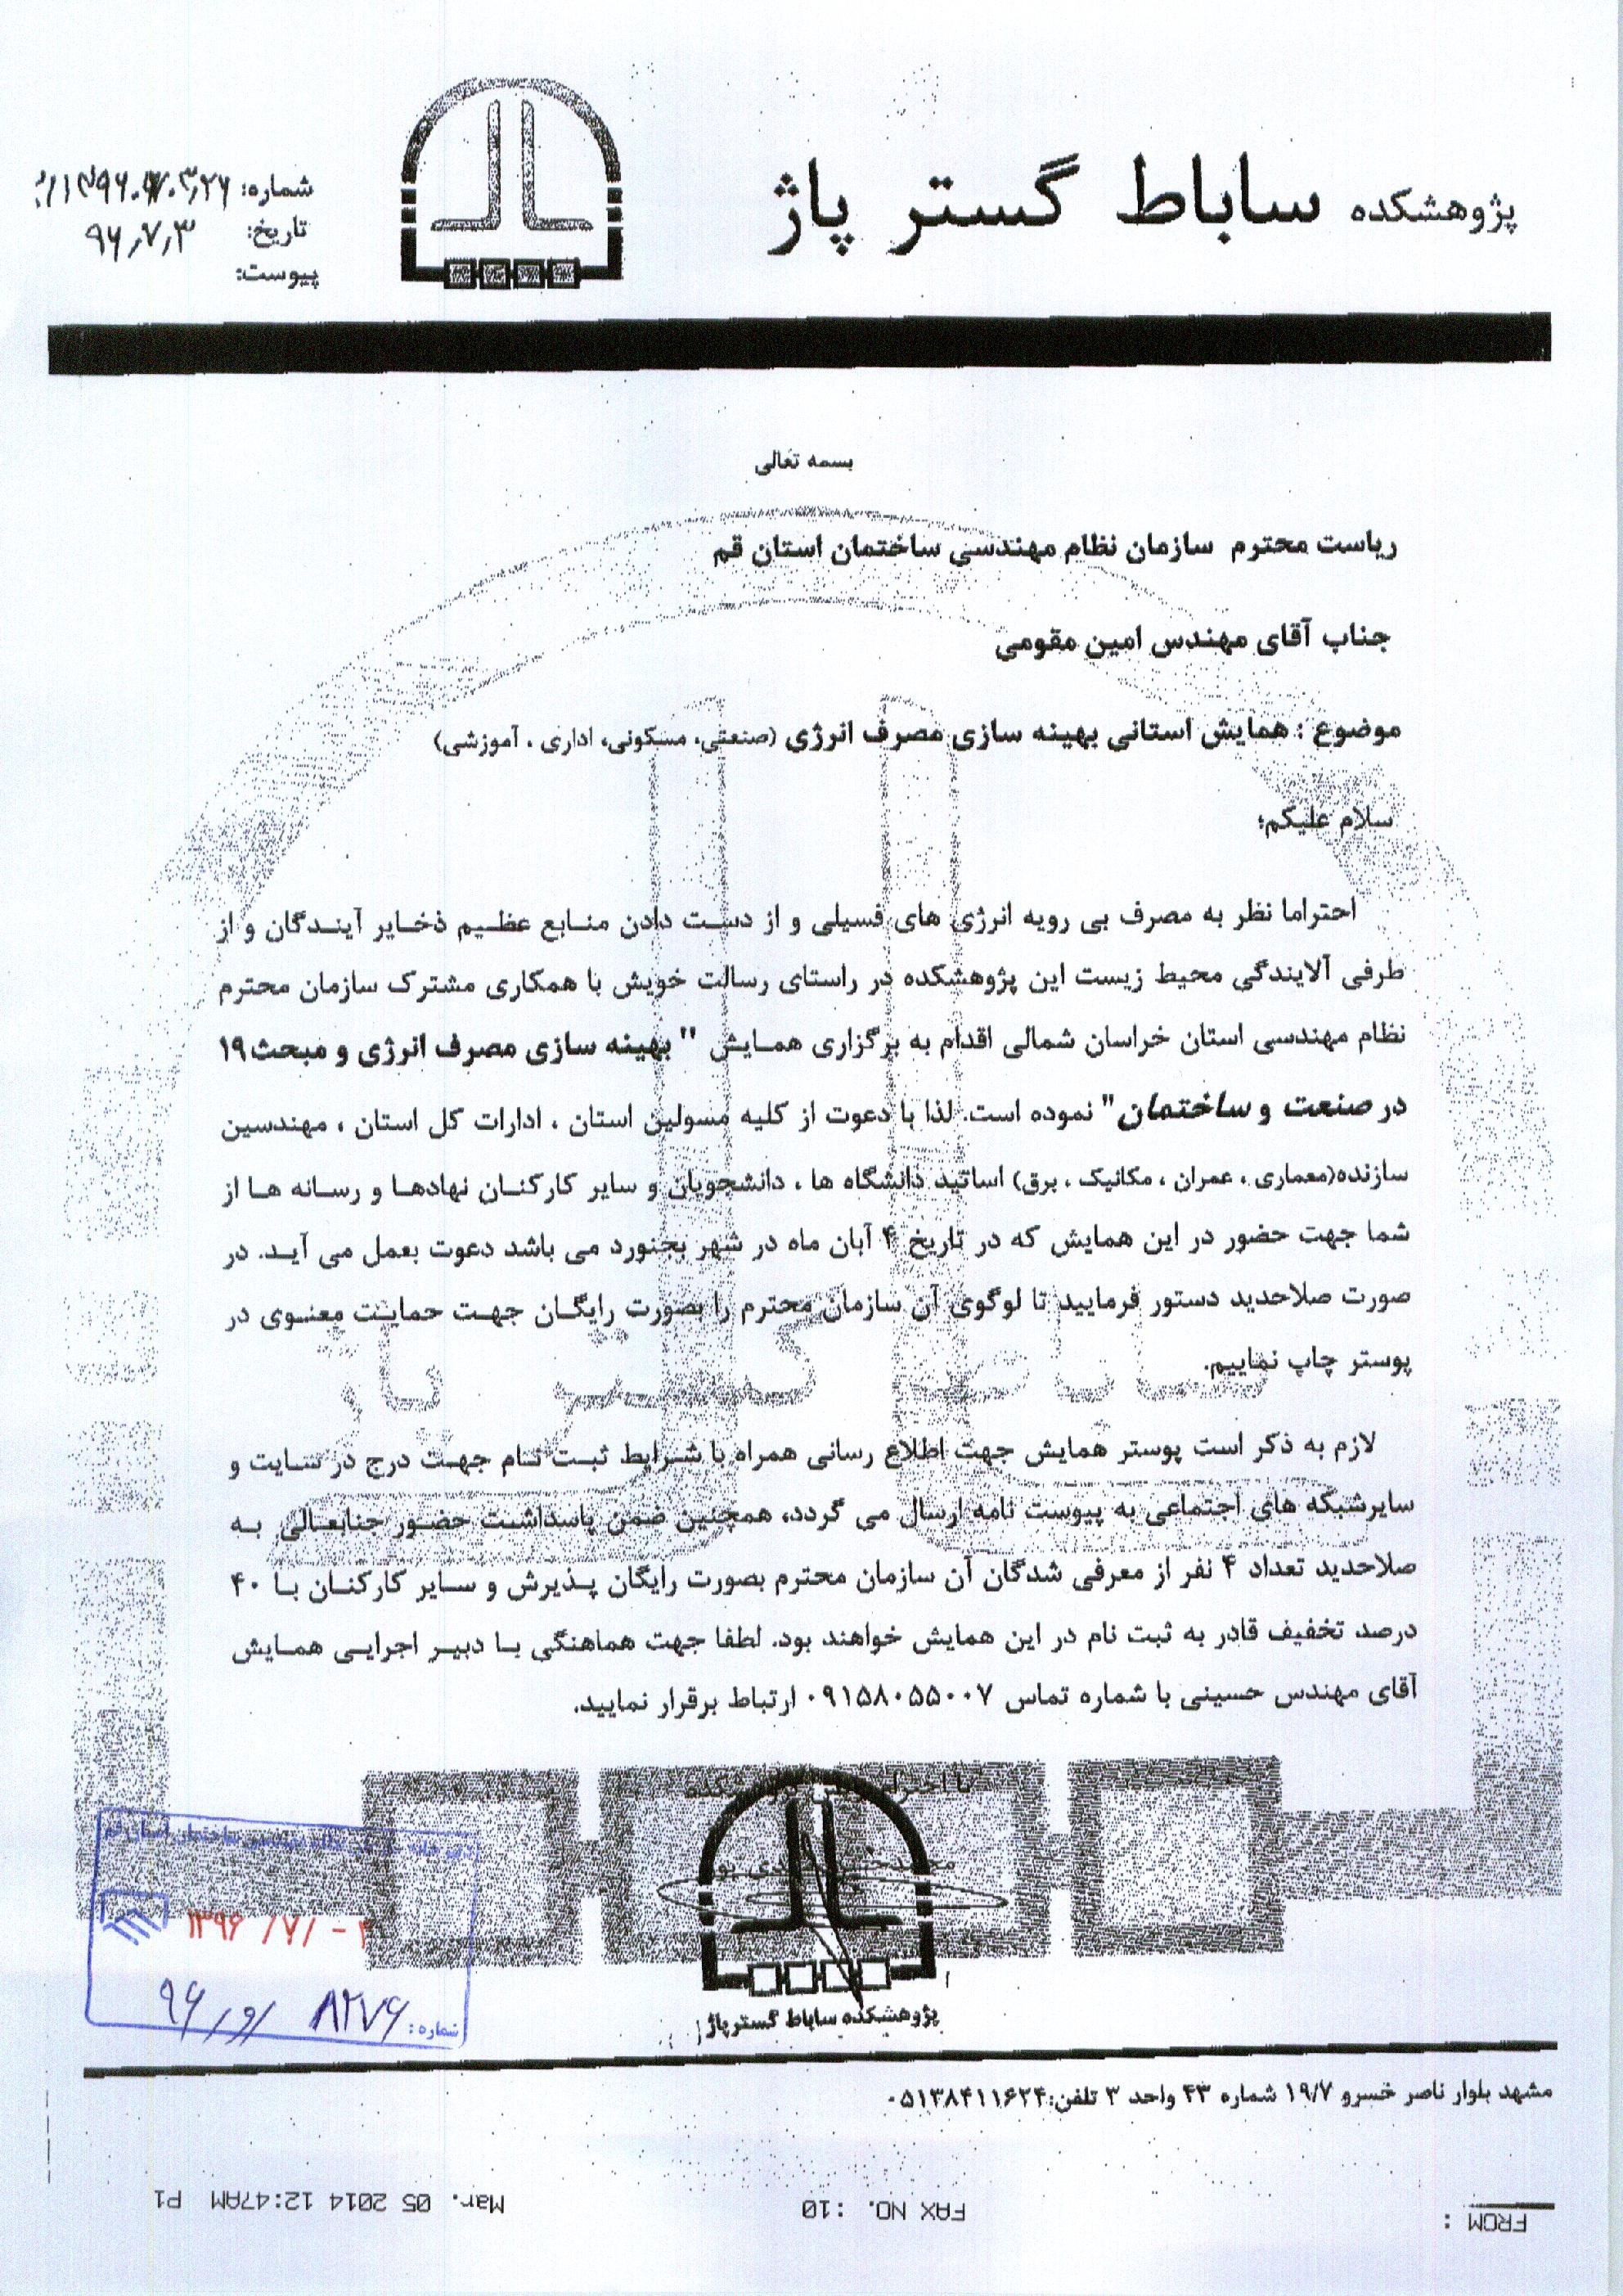 پژوهشکده ساباط گستر پاژ
شماره:
تاریخ: ۹۶٫۷٫۳
پیوست:
بسمه تعالی
ریاست محترم سازمان نظام مهندسی ساختمان استان قم
جناب آقای مهندس امین مقومی
موضوع : همایش استانی بهینه سازی مصرف انرژی (صنعتی، مسکونی، اداری ، آموزشی)
سلام علیکم؛
احتراما نظر به مصرف بی رویه انرژی های فسیلی و از دست دادن منابع عظیم ذخایر آیندگان و از
طرفی آلایندگی محیط زیست این پژوهشکده در راستای رسالت خویش با همکاری مشترک سازمان محترم
نظام مهندسی استان خراسان شمالی اقدام به برگزاری همایش " بهینه سازی مصرف انرژی و مبحث ۱۹
در صنعت و ساختمان" نموده است. لذا با دعوت از کلیه مسولین استان ، ادارات کل استان ، مهندسین
سازنده(معماری ، عمران ، مکانیک ، برق) اساتید دانشگاه ها ، دانشجویان و سایر کارکنان نهادها و رسانه ها از
شما جهت حضور در این همایش که در تاریخ ۴ آبان ماه در شهر بجنورد می باشد دعوت بعمل می آید. در
صورت صلاحدید دستور فرمایید تا لوگوی آن سازمان محترم را بصورت رایگان جهت حمایت معنوی در
پوستر چاپ نماییم.
لازم به ذکر است پوستر همایش جهت اطلاع رسانی همراه با شرایط ثبت نام جهت درج در سایت و
سایرشبکه های اجتماعی به پیوست نامه ارسال می گردد، همچنین ضمن پاسداشت حضور جنابعالی به
صلاحدید تعداد ۴ نفر از معرفی شدگان آن سازمان محترم بصورت رایگان پذیرش و سایر کارکنان با ۴۰
درصد تخفیف قادر به ثبت نام در این همایش خواهند بود. لطفا جهت هماهنگی با دبیر اجرایی همایش
آقای مهندس حسینی با شماره تماس ۰۹۱۵۸۰۵۵۰۰۷ ارتباط برقرار نمایید.
ساباط گستر پاژ
با احترام
پژوهشکده ساباط گستر پاژ
دبیرخانه سازمان نظام مهندسی ساختمان استان قم
۱۳۹۶ /۷/ -۴
شماره: ۸۲۷۶ /و/ ۹۶
مشهد بلوار ناصر خسرو ۱۹/۷ شماره ۴۳ واحد ۳ تلفن:۰۵۱۳۸۴۱۱۶۲۴
FROM :
FAX NO. :10
Mar. 05 2014 12:47AM P1